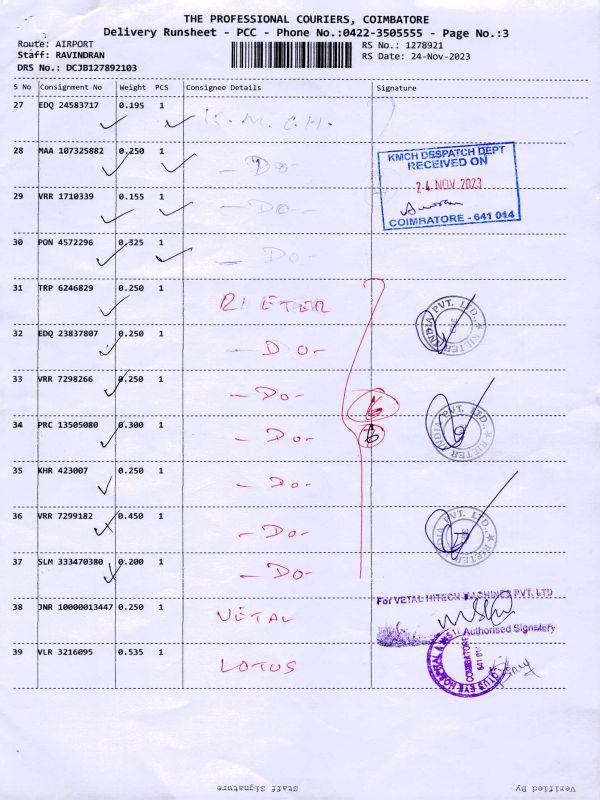 THE PROFESSIONAL COURIERS, COIMBATORE
Delivery Runsheet - PCC - Phone No.:0422-3505555 - Page No.:3
Route: AIRPORT
RS No.: 1278921
Staff: RAVINDRAN
RS Date: 24-Nov-2023
DRS No.: DCJB127892103
S No Consignment No Weight PCS Consignee Details Signature
27 EDQ 24583717 0.195 1 K.M.C.H.
28 MAA 107325882 0.250 1 - Do -
KMCH DESPATCH DEPT
RECEIVED ON
24 NOV 2023
COIMBATORE - 641 014
29 VRR 1710339 0.155 1 - Do -
30 PON 4572296 0.325 1 - Do -
31 TRP 6246829 0.250 1 RIETER
INDIA PVT. LTD., ★ RIETER
32 EDQ 23837807 0.250 1 - Do -
33 VRR 7298266 0.250 1 - Do -
6
34 PRC 13505080 0.300 1 - Do - 6
INDIA PVT. LTD., ★ RIETER
35 KHR 423007 0.250 1 - Do -
36 VRR 7299182 0.450 1 - Do -
INDIA PVT. LTD., ★ RIETER
37 SLM 333470380 0.200 1 - Do -
38 JNR 10000013447 0.250 1 VETAL
For VETAL HITECH MACHINES PVT. LTD
Authorised Signatory
39 VLR 3216095 0.535 1 LOTUS
LOTUS EYE HOSPITAL &
COIMBATORE
641 014
Staff Signature
Verified By